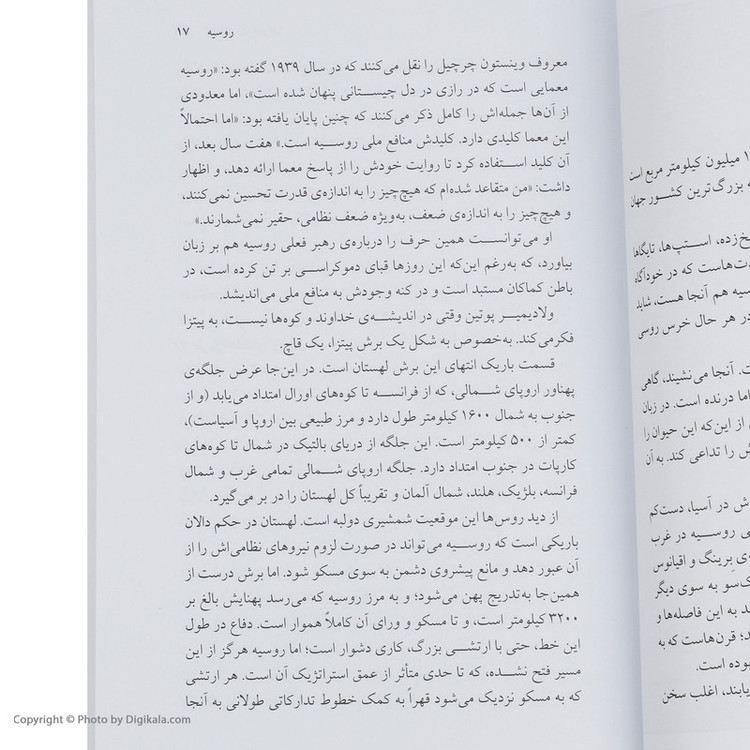 ۱ میلیون کیلومتر مربع است
ه بزرگ‌ترین کشور جهان
خ‌زده، استپ‌ها، تایگاها
ت‌هاست که در خودآگاه
سیه هم آنجا هست، شاید
در هر حال خرس روسی
ت. آنجا می‌نشیند، گاهی
اما درنده است. در زبان
ی از این‌که این حیوان را
ش را تداعی کند. به آن
ش در آسیا، دست‌کم
ی روسیه در غرب
ی برینگ و اقیانوس
ک‌سو به سوی دیگر
د به این فاصله‌ها و
د؛ قرن‌هاست که به
بوده است.
یابند، اغلب سخن
روسیه ۱۷
معروف وینستون چرچیل را نقل می‌کنند که در سال ۱۹۳۹ گفته بود: «روسیه
معمایی است که در رازی در دل چیستانی پنهان شده است»، اما معدودی
از آن‌ها جمله‌اش را کامل ذکر می‌کنند که چنین پایان یافته بود: «اما احتمالاً
این معما کلیدی دارد. کلیدش منافع ملی روسیه است.» هفت سال بعد، از
آن کلید استفاده کرد تا روایت خودش را از پاسخ معما ارائه دهد، و اظهار
داشت: «من متقاعد شده‌ام که هیچ‌چیز را به اندازه‌ی قدرت تحسین نمی‌کنند،
و هیچ‌چیز را به اندازه‌ی ضعف، به‌ویژه ضعف نظامی، حقیر نمی‌شمارند.»
او می‌توانست همین حرف را درباره‌ی رهبر فعلی روسیه هم بر زبان
بیاورد، که به‌رغم این‌که این روزها قبای دموکراسی بر تن کرده است، در
باطن کماکان مستبد است و در کنه وجودش به منافع ملی می‌اندیشد.
ولادیمیر پوتین وقتی در اندیشه‌ی خداوند و کوه‌ها نیست، به پیتزا
فکر می‌کند. به‌خصوص به شکل یک برش پیتزا، یک قاچ.
قسمت باریک انتهای این برش لهستان است. در این‌جا عرض جلگه‌ی
پهناور اروپای شمالی، که از فرانسه تا کوه‌های اورال امتداد می‌یابد (و از
جنوب به شمال ۱۶۰۰ کیلومتر طول دارد و مرز طبیعی بین اروپا و آسیاست)،
کمتر از ۵۰۰ کیلومتر است. این جلگه از دریای بالتیک در شمال تا کوه‌های
کارپات در جنوب امتداد دارد. جلگه اروپای شمالی تمامی غرب و شمال
فرانسه، بلژیک، هلند، شمال آلمان و تقریباً کل لهستان را در بر می‌گیرد.
از دید روس‌ها این موقعیت شمشیری دولبه است. لهستان در حکم دالان
باریکی است که روسیه می‌تواند در صورت لزوم نیروهای نظامی‌اش را از
آن عبور دهد و مانع پیشروی دشمن به سوی مسکو شود. اما برش درست از
همین‌جا به‌تدریج پهن می‌شود؛ و به مرز روسیه که می‌رسد پهنایش بالغ بر
۳۲۰۰ کیلومتر است، و تا مسکو و ورای آن کاملاً هموار است. دفاع در طول
این خط، حتی با ارتشی بزرگ، کاری دشوار است؛ اما روسیه هرگز از این
مسیر فتح نشده، که تا حدی متأثر از عمق استراتژیک آن است. هر ارتشی
که به مسکو نزدیک می‌شود قهراً به کمک خطوط تدارکاتی طولانی به آنجا
Copyright © Photo by Digikala.com